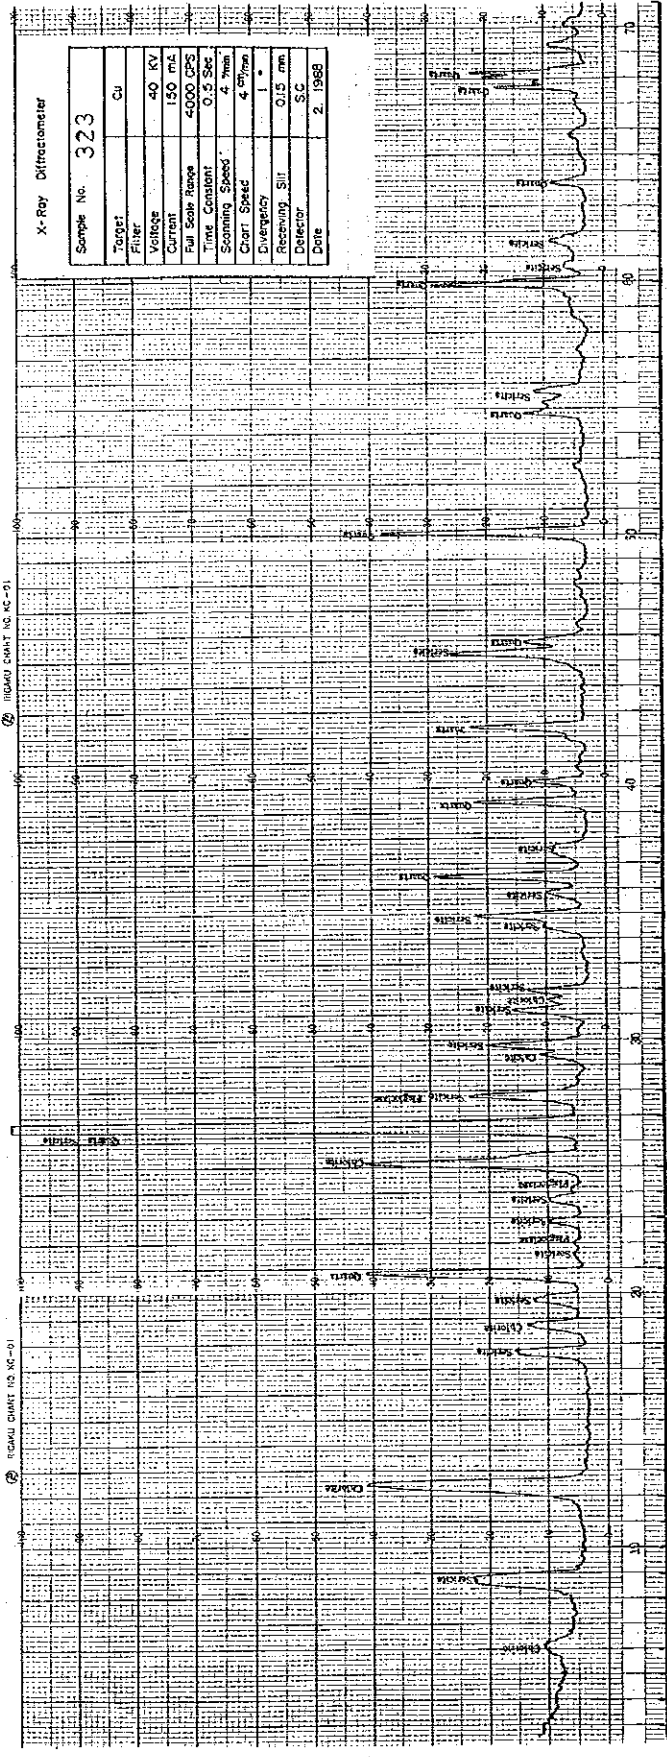 X-Ray Diffractometer
Sample No. 323
Target Cu
Filter
Voltage 40 KV
Current 150 mA
Full Scale Range 4000 CPS
Time Constant 0.5 Sec
Scanning Speed 4 °/min
Chart Speed 4 cm/min
Divergency 1 °
Receiving Slit 0.15 mm
Detector S.C
Date 2. 1988
RIGAKU CHART NO. KC-01
RIGAKU CHART NO. KC-01
Chlorite
Sericite
Chlorite
Sericite
Chlorite
Sericite
Quartz
Sericite
Plagioclase
Sericite
Sericite
Plagioclase
Chlorite
Quartz Sericite
Sericite Plagioclase
Calcite
Sericite
Sericite
Chlorite
Sericite
Sericite
Sericite
Sericite
Quartz
Sericite
Quartz
Quartz
Quartz
Sericite
Quartz
Quartz
Quartz
Sericite
Quartz
Sericite
Sericite
Quartz
Quartz
Quartz
10
20
30
40
50
60
70